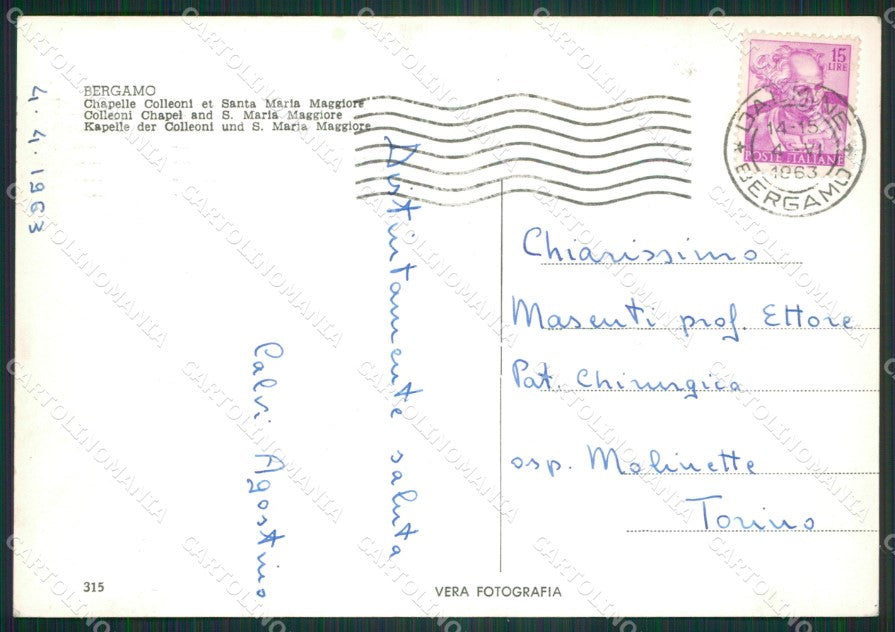 BERGAMO
Chapelle Colleoni et Santa Maria Maggiore
Colleoni Chapel and S. Maria Maggiore
Kapelle der Colleoni und S. Maria Maggiore
4.4.1963
Distintamente saluta
Calvi Agostino
15
LIRE
POSTE ITALIANE
DALMINE
14-15
1963
BERGAMO
Chiarissimo
Masenti prof. Ettore
Pat. Chirurgica
osp. Molinette
Torino
315
VERA FOTOGRAFIA
CARTOLINOMANIA